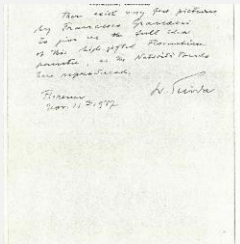 There exist very few pictures
by Francesco Granacci
to give us the full idea
of this high gifted Florentine
painter, as the Nativity Tondo
here reproduced.
Florence
Nov. 11th 1957
W. Suida